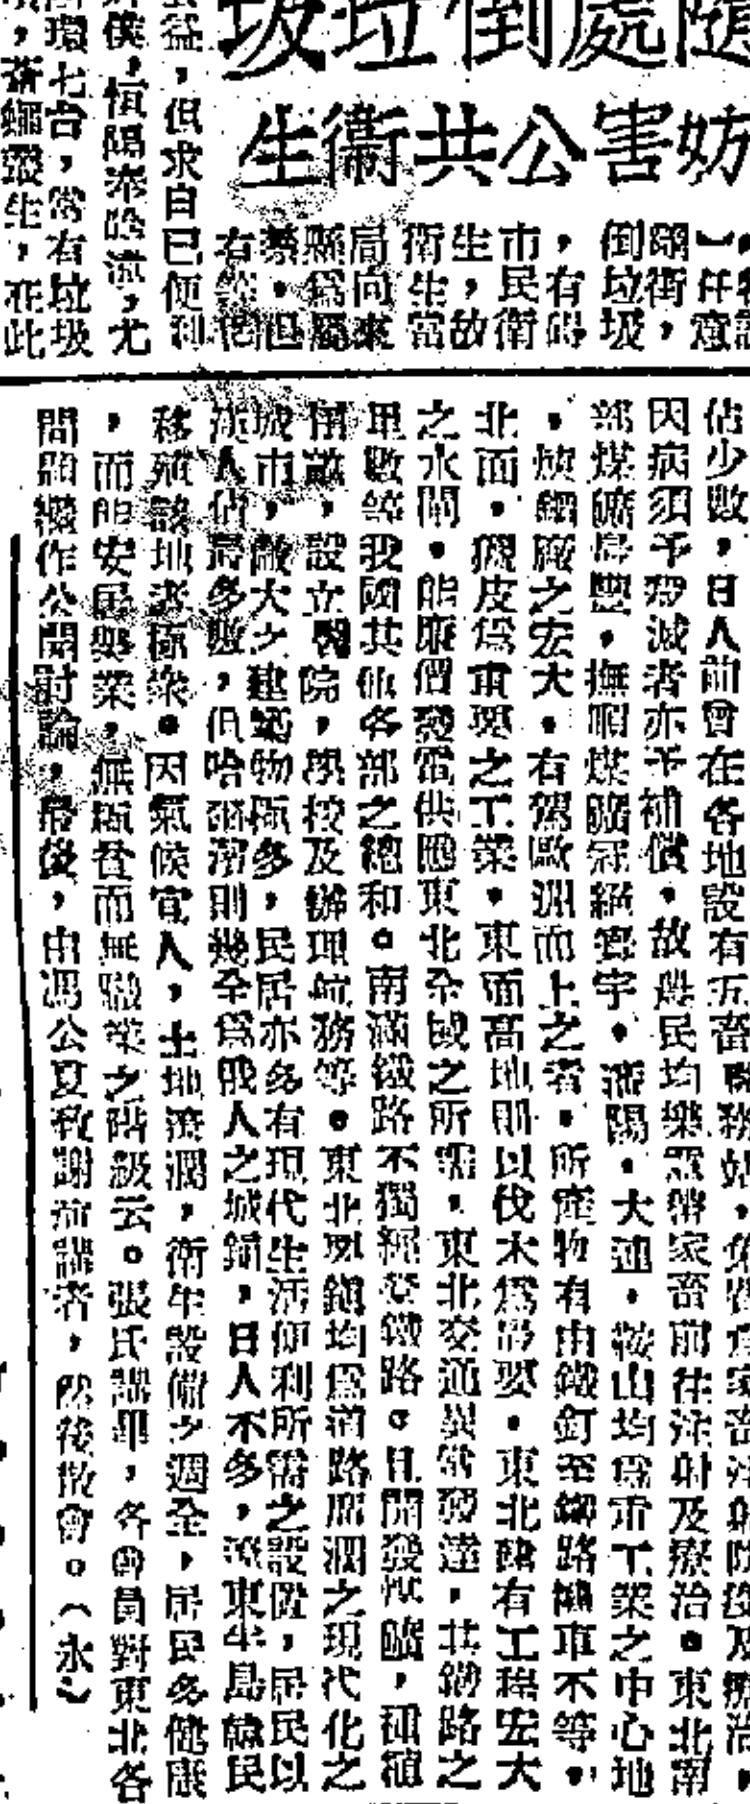 隨處倒垃圾
妨害公共衞生
任意
衞，
倒垃圾
，有碍
市民衛
生，故
衛生當
局向來
縣為屬
禁，但
益，但求自己便利
僕，恒陽奉陰違，尤
環七台，常有垃圾
，蒼蠅叢生，在此
佔少數，日人前曾在各地設有五畜
因病須予毀滅者亦予補償。故農民均樂意攜家畜前往注射及療治。東北南
部煤鑛局豐，撫順煤鑛冠絕寰宇。瀋陽。大連。鞍山均為重工業之中心地
，煉鋼廠之宏大。有駕歐洲而上之者。所產物有由鐵釘至鋼路機車不等，
北面。獸皮為重要之工業。東面高地則以伐木為最要。東北建有工程宏大
之水閘。能廉價發電供應東北全域之所需，東北交通異常發達，其鐵路之
里數等我國其他各部之總和。南滿鐵路不獨經營鐵路。且開發煤鑛，種植
，設立醫院，學校及辦理航務等。東北城鎮均為道路廣濶之現代化之
城市，龐大之建築物極多，民居亦多有現代生活便利所需之設置，居民以
漢人佔最多數，但哈爾濱則幾全為俄人之城鎮，日人不多，遼東半島韓民
移殖該地者極衆。因氣候宜人，土地濟濶，衛生設備之週全，居民多健康
，而能安居樂業，無極貧而無職業之階級云。張氏講畢，各會員對東北各
問題擬作公開討論，最後，由馮公夏致謝演講者，然後散會。（永）